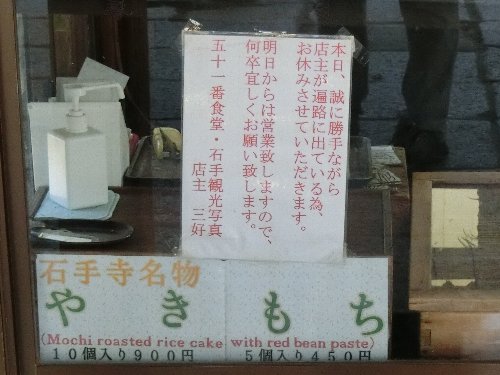 本日、誠に勝手ながら
店主が遍路に出ている為、
お休みさせていただきます。
明日からは営業致しますので、
何卒宜しくお願い致します。
五十一番食堂・石手観光写真
店主 三好
石手寺名物
やきもち
(Mochi roasted rice cake with red bean paste)
10個入り900円 5個入り450円